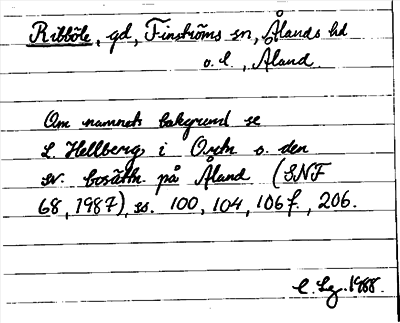 Ribböle, gd, Finströms sn, Ålands hd
o. l., Åland
Om namnets bakgrund se
L. Hellberg i Ortn o. den
sv. bosättn på Åland (SNF
68, 1987), ss. 100, 104, 106 f., 206.
1988.